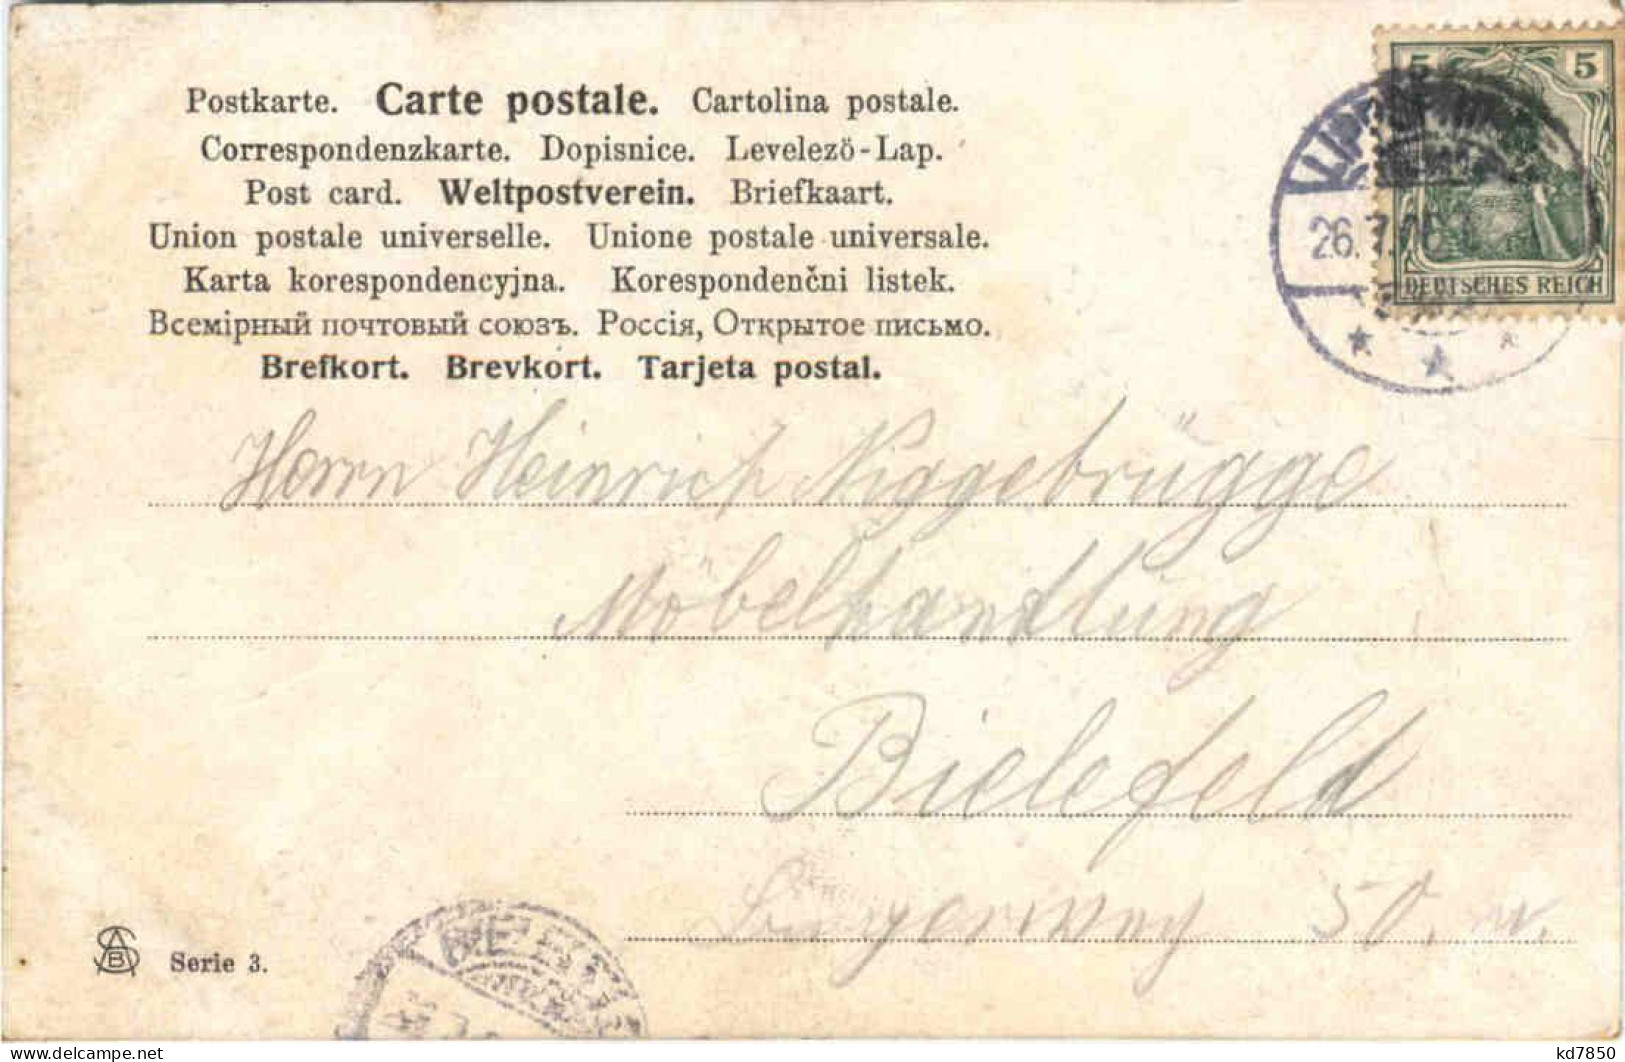 Postkarte. Carte postale. Cartolina postale.
Correspondenzkarte. Dopisnice. Levelezö-Lap.
Post card. Weltpostverein. Briefkaart.
Union postale universelle. Unione postale universale.
Karta korespondencyjna. Korespondenčni listek.
Всемірный почтовый союзъ. Россія, Открытое письмо.
Brefkort. Brevkort. Tarjeta postal.
5 5
DEUTSCHES REICH
26.7.
Herrn Heinrich Niggebrügge
Möbelhandlung
Bielefeld
50.
Serie 3.
kd7850